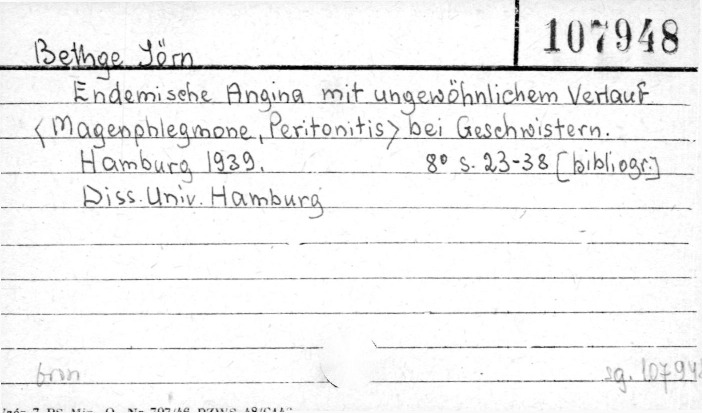 107948
Bethge Jörn
Endemische Angina mit ungewöhnlichem Verlauf
<Magenphlegmone, Peritonitis> bei Geschwistern.
Hamburg 1939. 8° s. 23-38 [bibliogr.]
Diss. Univ. Hamburg
sg. 10794